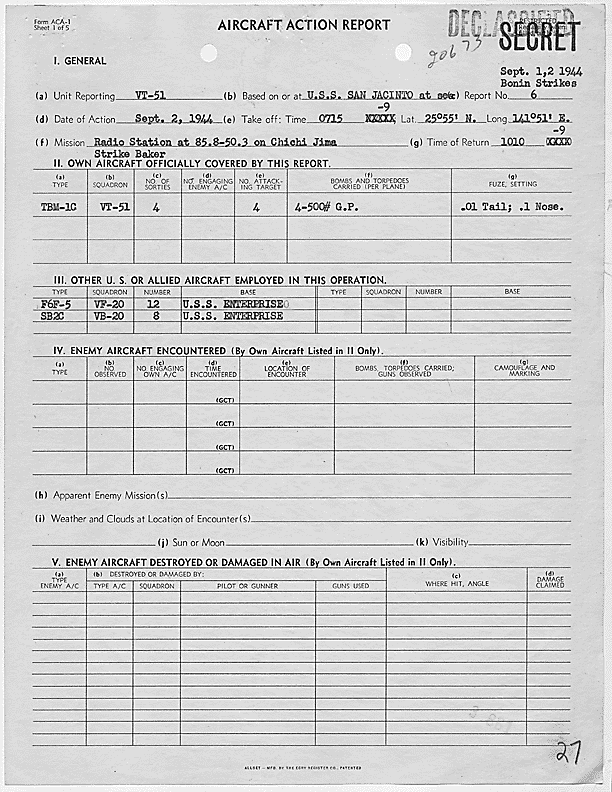 Form ACA-1
Sheet 1 of 5
AIRCRAFT ACTION REPORT
DECLASSIFIED
RESTRICTED
SECRET
I. GENERAL
Sept. 1,2 1944
Bonin Strikes
(a) Unit Reporting VT-51 (b) Based on or at U.S.S. SAN JACINTO at sea (c) Report No. 6
(d) Date of Action Sept. 2, 1944 (e) Take off: Time 0715 -9 XXXXX Lat. 25°55' N. Long 141°51' E.
(f) Mission Radio Station at 85.8-50.3 on Chichi Jima (g) Time of Return 1010 -9 XXXX
Strike Baker
II. OWN AIRCRAFT OFFICIALLY COVERED BY THIS REPORT.
(a) TYPE (b) SQUADRON (c) NO. OF SORTIES (d) NO. ENGAGING ENEMY A/C (e) NO. ATTACKING TARGET (f) BOMBS AND TORPEDOES CARRIED (PER PLANE) (g) FUZE, SETTING
TBM-1C VT-51 4 4 4-500# G.P. .01 Tail; .1 Nose.
III. OTHER U. S. OR ALLIED AIRCRAFT EMPLOYED IN THIS OPERATION.
TYPE SQUADRON NUMBER BASE TYPE SQUADRON NUMBER BASE
F6F-5 VF-20 12 U.S.S. ENTERPRISE
SB2C VB-20 8 U.S.S. ENTERPRISE
IV. ENEMY AIRCRAFT ENCOUNTERED (By Own Aircraft Listed in II Only).
(a) TYPE (b) NO. OBSERVED (c) NO. ENGAGING OWN A/C (d) TIME ENCOUNTERED (e) LOCATION OF ENCOUNTER (f) BOMBS, TORPEDOES CARRIED; GUNS OBSERVED (g) CAMOUFLAGE AND MARKING
(GCT)
(GCT)
(GCT)
(GCT)
(h) Apparent Enemy Mission(s)
(i) Weather and Clouds at Location of Encounter(s)
(j) Sun or Moon (k) Visibility
V. ENEMY AIRCRAFT DESTROYED OR DAMAGED IN AIR (By Own Aircraft Listed in II Only).
(a) TYPE ENEMY A/C (b) DESTROYED OR DAMAGED BY: (c) WHERE HIT, ANGLE (d) DAMAGE CLAIMED
TYPE A/C SQUADRON PILOT OR GUNNER GUNS USED
27
ALLSET — MFG. BY THE COPY REGISTER CO., PATENTED